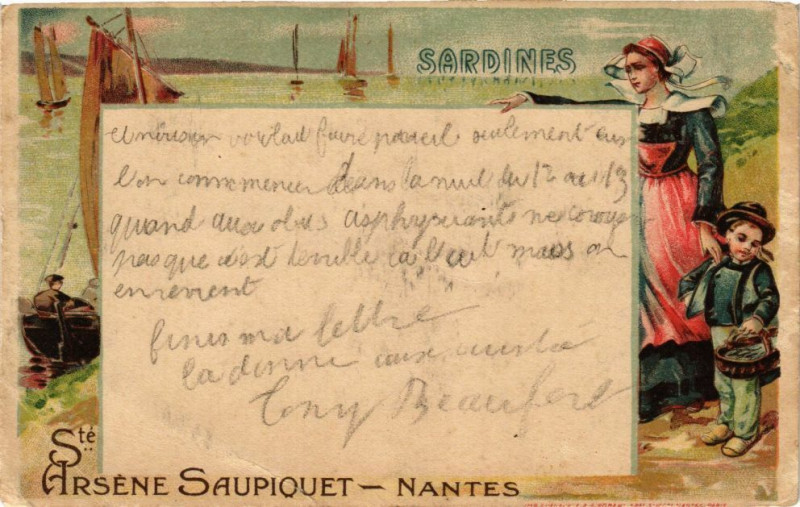 SARDINES
voulait faire pareil seulement
l'on commencer dans la nuit du 12 au 13
quand aux obus asphyxiants ne croyez
pas que c'est terrible ça l'est mais on
en revient
finis ma lettre
la donne aux
Tony Beaufort
Sté
ARSÈNE SAUPIQUET — NANTES